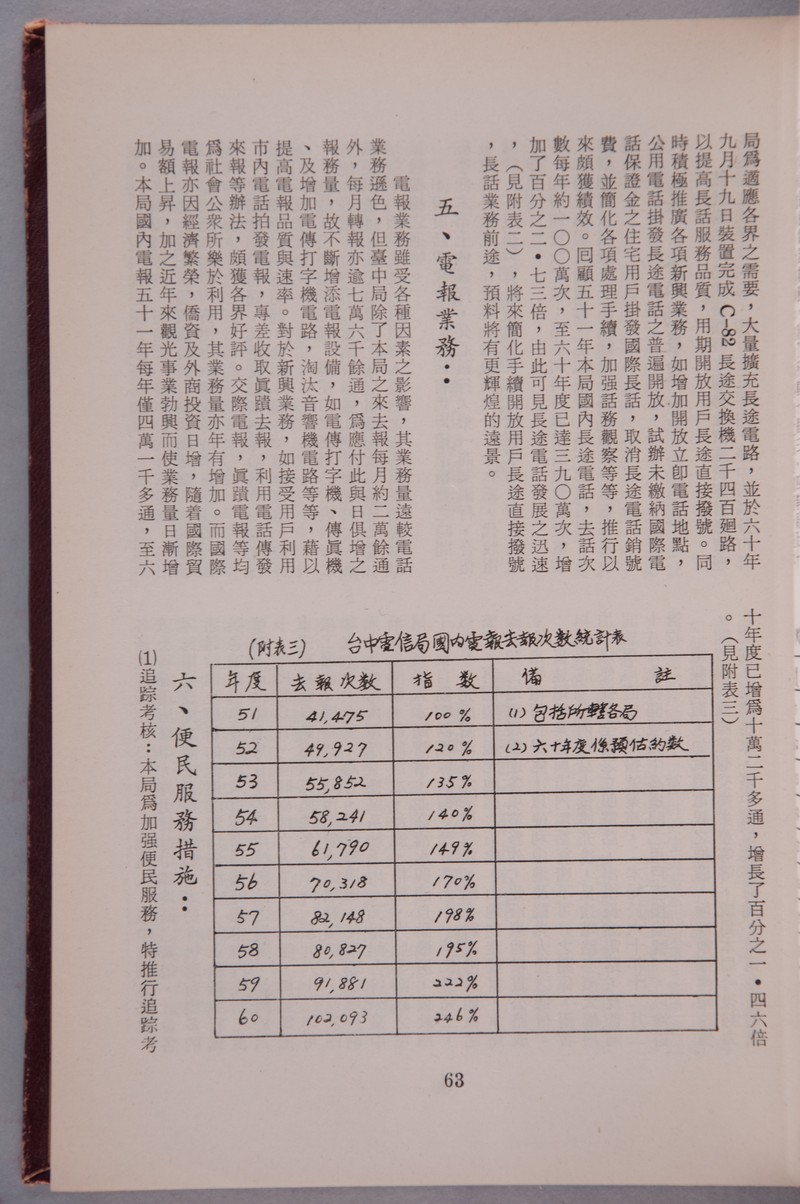 局爲適應各界之需要，大量擴充長途電路，並於六十年
九月十九日裝置完成 C-82 長途交換機二千四百廻路，
以提高長話服務品質，用期開放用戶長途直接撥號。同
時積極推廣各項新興業務，如增加開放立卽電話地點，
公用電話掛發長途電話之普遍開放，試辦未繳納國際電
話保證金之住宅用戶掛發國際長話，取消長途電話銷號
費，並簡化各項處理手續，加强話務觀察等等，推行以
來頗獲績效。囘顧五十一年本局國內長途電話，去話次
數每年約一〇〇萬次，至六十年度已達三九〇萬次，增
加了百分之二•七三倍，由此可見長途電話發展之迅速
，（見附表二），將來簡化手續開放用戶長途直接撥號
，長話業務前途，預料將有更輝煌的遠景。
五、電報業務：
電報業務雖受各種因素之影響，其業務量遠較電話
業務遜色，但臺中局除了本局之來去報每月約二萬餘通
外，每月轉報亦逾七萬六千餘通，爲應付此與日俱增之
報務量，故不斷增添電報設備，如電傳打字機、傳眞機
、及增加電傳打字機電路，淘汰音響機電路等等，藉以
提高電報品質與速率。對於新興業務，如接受用戶利用
市內電話拍發電報，專差收取眞蹟去報，利用電話傳發
來報等辦法，頗獲各界好評。交際電報，眞蹟電報等均
爲社會公衆所樂於利用，其業務量亦年有增加。而國際
電報亦因經濟繁榮，僑資及外商投資日增，隨着國際貿
易額上昇，加之近年來觀光事業勃興而使業務量日漸增
加。本局國內電報五十一年每年僅四萬一千多通，至六
十年度已增爲十萬二千多通，增長了百分之一•四六倍
。（見附表三）
(附表三) 台中電信局國內電報去報次數統計表
年度 去報次數 指數 備註
51 41,475 100% (1)包括所轄各局
52 49,927 120% (2)六十年度係預估約數
53 55,852 135%
54 58,241 140%
55 61,790 149%
56 70,318 170%
57 82,148 198%
58 80,827 195%
59 91,881 222%
60 102,093 246%
六、便民服務措施：
(1)追踪考核：本局爲加强便民服務，特推行追踪考
63